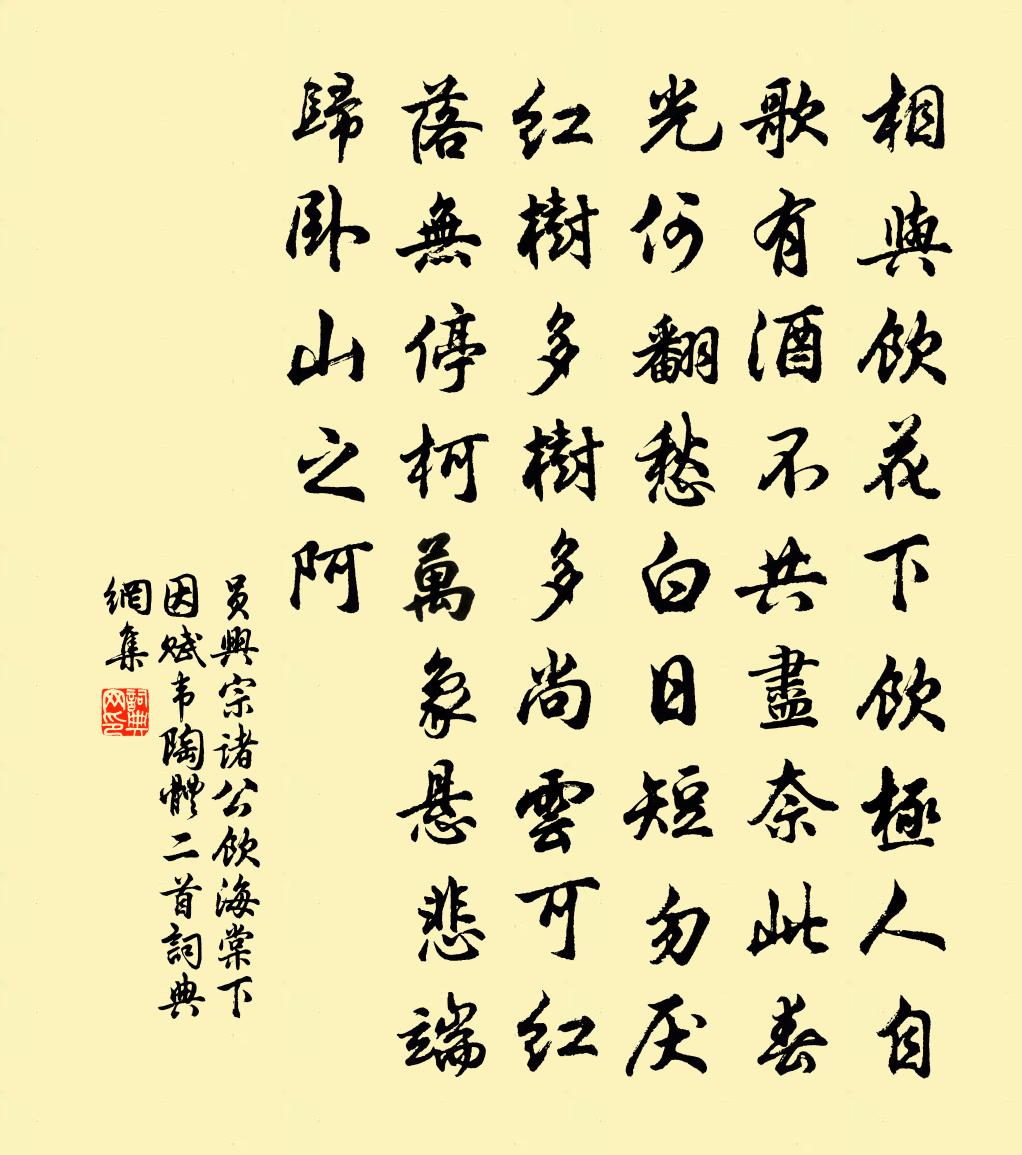 相與飲花下飲極人自
歌有酒不共盡奈此春
光何翻愁白日短勿厌
紅樹多樹多尚雲可紅
落無停柯萬象悬悲端
歸卧山之阿
员興宗诸公飲海棠下
因赋韦陶體二首詞典
網集
詞典